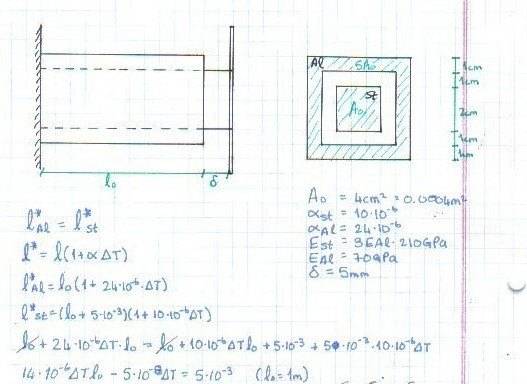 Al
5A₀
st
A₀
1cm
1cm
2cm
1cm
1cm
l₀
δ
A₀ = 4cm² = 0.0004m²
α_st = 10·10⁻⁶
α_Al = 24·10⁻⁶
E_st = 3E_Al = 210GPa
E_Al = 70GPa
δ = 5mm
l*_Al = l*_st
l* = l(1+αΔT)
l*_Al = l₀(1+24·10⁻⁶·ΔT)
l*_st = (l₀+5·10⁻³)(1+10·10⁻⁶ΔT)
l₀ + 24·10⁻⁶ΔT·l₀ = l₀ + 10·10⁻⁶ΔT l₀ + 5·10⁻³ + 5·10⁻³·10·10⁻⁶ΔT
14·10⁻⁶ΔT l₀ − 5·10⁻⁸ΔT = 5·10⁻³ (l₀=1m)